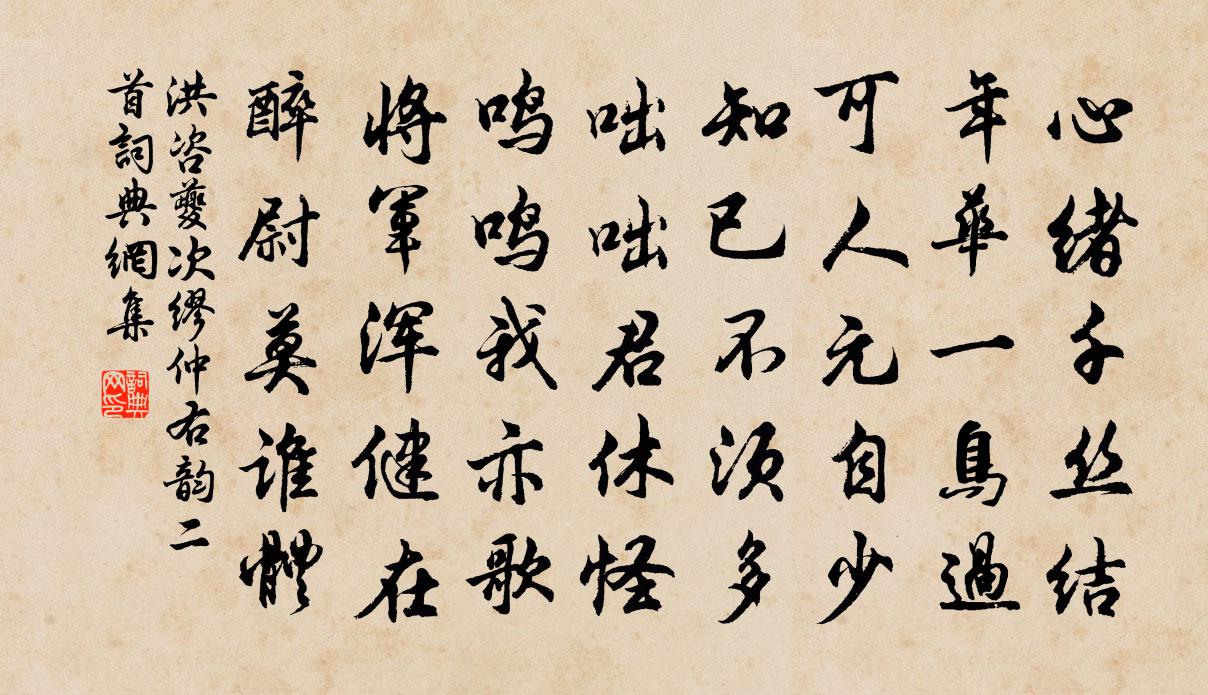 心绪千丝结
年华一鳥過
可人元自少
知已不须多
咄咄君休怪
鸣鸣我亦歌
将军浑健在
醉尉莫谁體
洪咨夔次缪仲右韵二
首詞典網集
詞典
网印